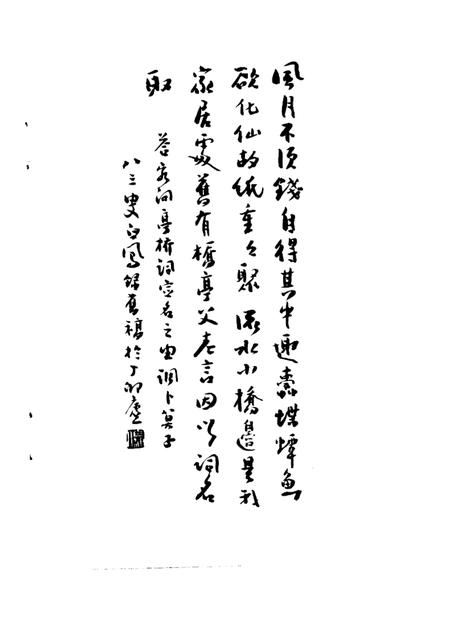 風月不須錢自得其中趣蠹蝶蟫魚
欲化仙故紙重々聚 流水小橋邊是我
家居處舊有橋亭父老言因以詞名
取
答客问亭橋詞室名之由調卜算子
八三叟白鳳錄舊稿於丁卯